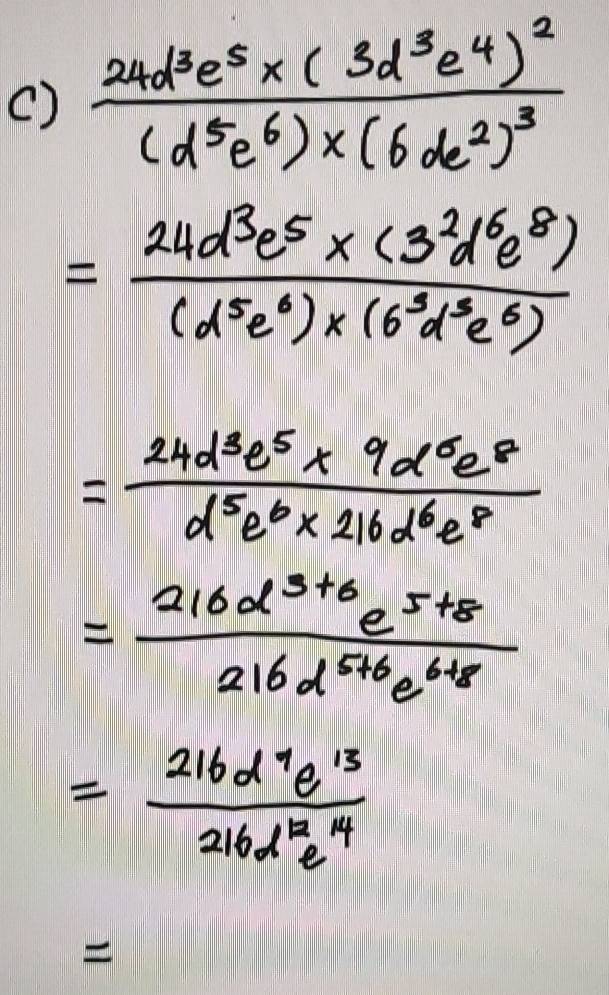 c) 24d³e⁵ × ( 3d³e⁴)²
(d⁵e⁶) × (6de²)³
= 24d³e⁵ × (3²d⁶e⁸)
(d⁵e⁶) × (6³d³e⁶)
= 24d³e⁵ × 9d⁶e⁸
d⁵e⁶ × 216d⁶e⁸
= 216d³⁺⁶e⁵⁺⁸
216d⁵⁺⁶e⁶⁺⁸
= 216d⁹e¹³
216d¹²e¹⁴
=